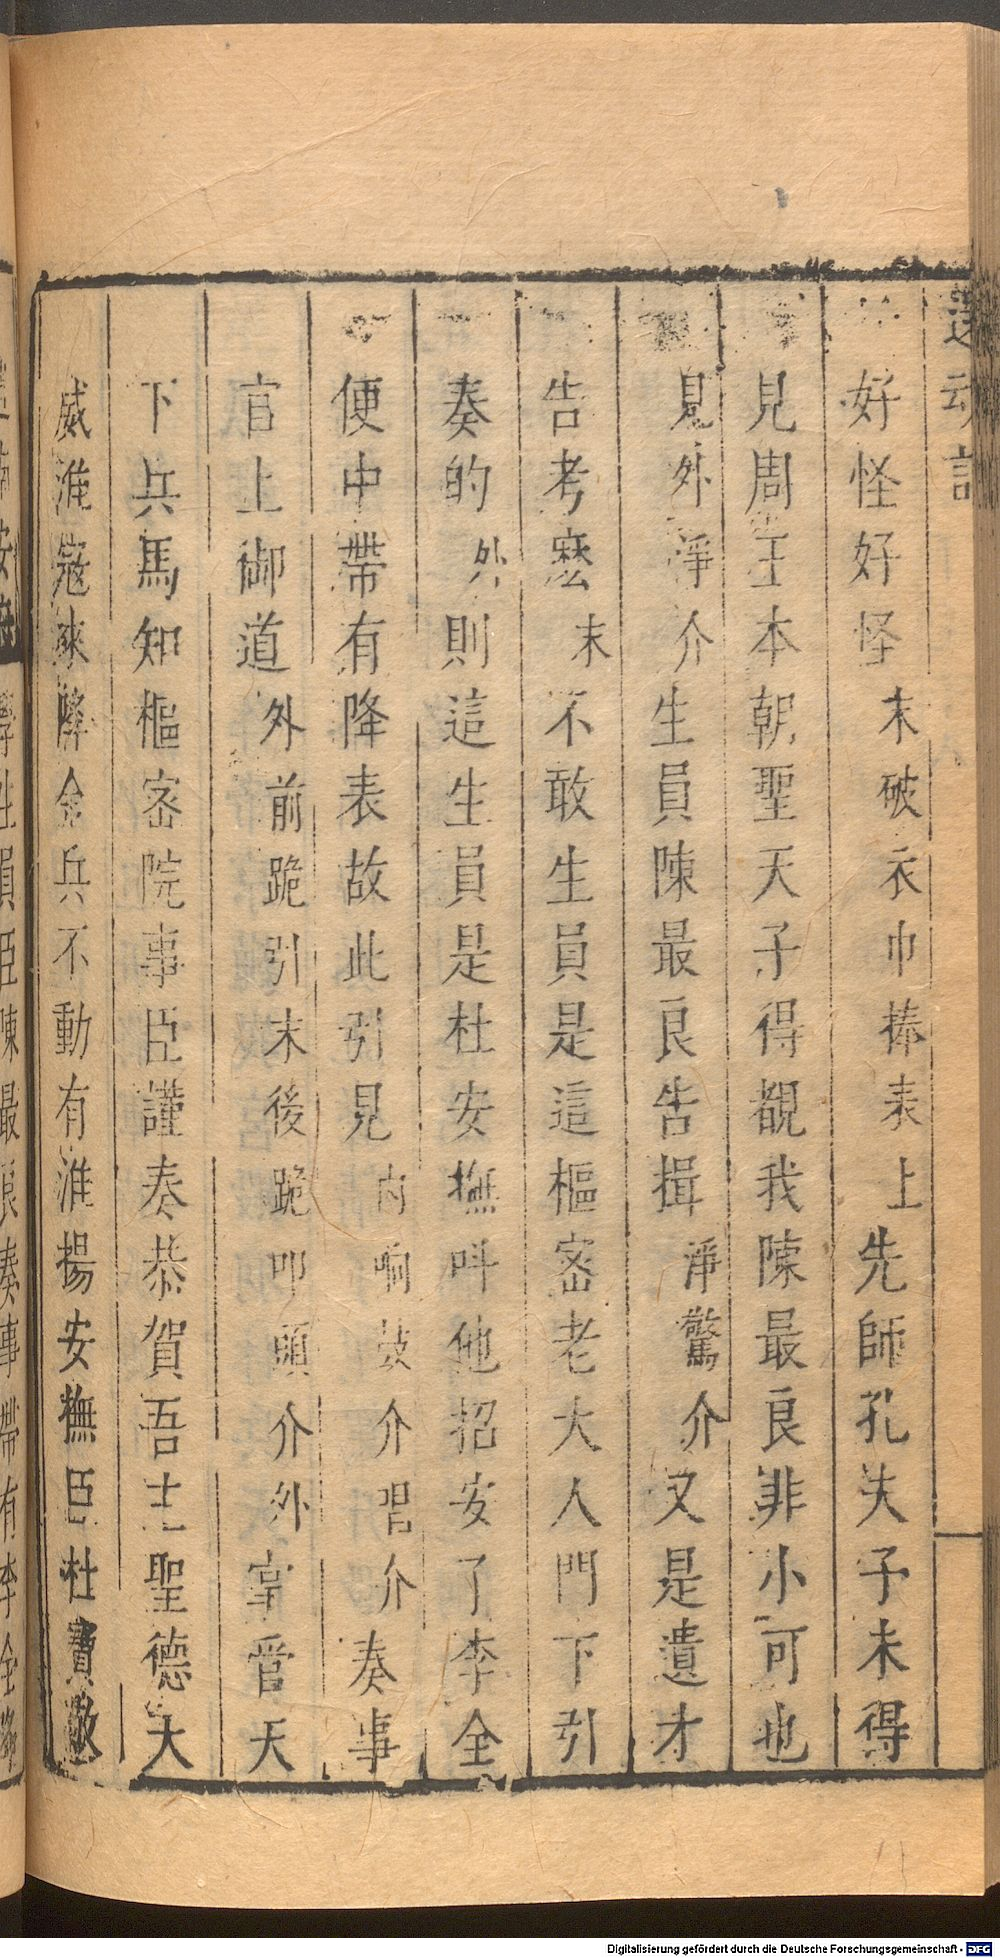 還魂記
好怪好怪末破衣巾捧表上先師孔夫子未得
見周王本朝聖天子得覩我陳最良非小可也
見外淨介生員陳最良告揖淨驚介又是遺才
告考麽末不敢生員是這樞密老大人門下引
奏的外則這生員是杜安撫呌他招安了李全
便中帶有降表故此引見内响鼓介唱介奏事
官上御道外前跪引末後跪叩頭介外掌管天
下兵馬知樞密院事臣謹奏恭賀吾主聖德大
威淮寇來降金兵不動有淮揚安撫臣杜寶敬
學生員臣陳最良奏事帶有李全
Digitalisierung gefördert durch die Deutsche Forschungsgemeinschaft - DFG